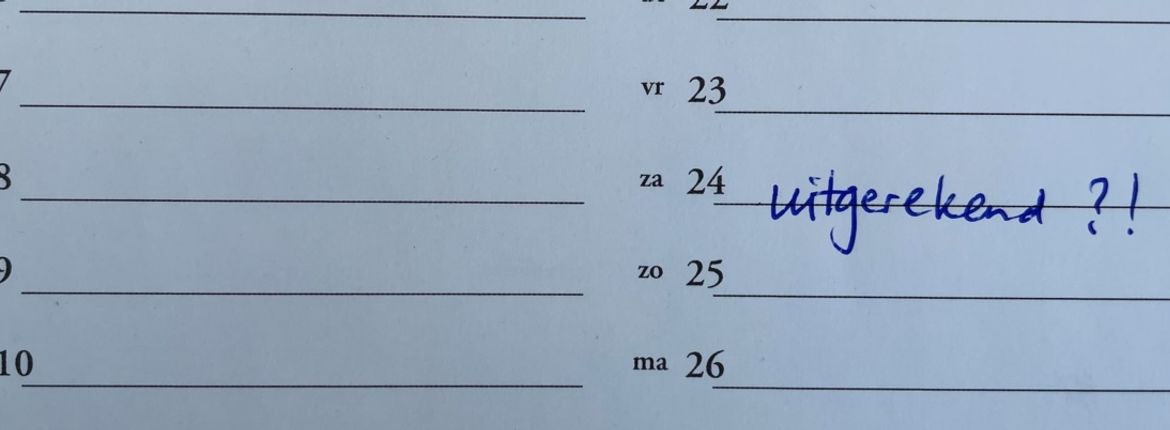 7
8
9
10
22
vr 23
za 24 uitgerekend ?!
zo 25
ma 26